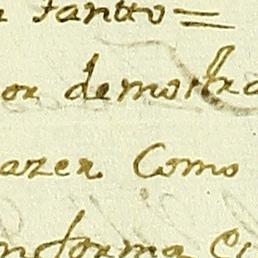 tantto =
or demostra
azer Como
nforma